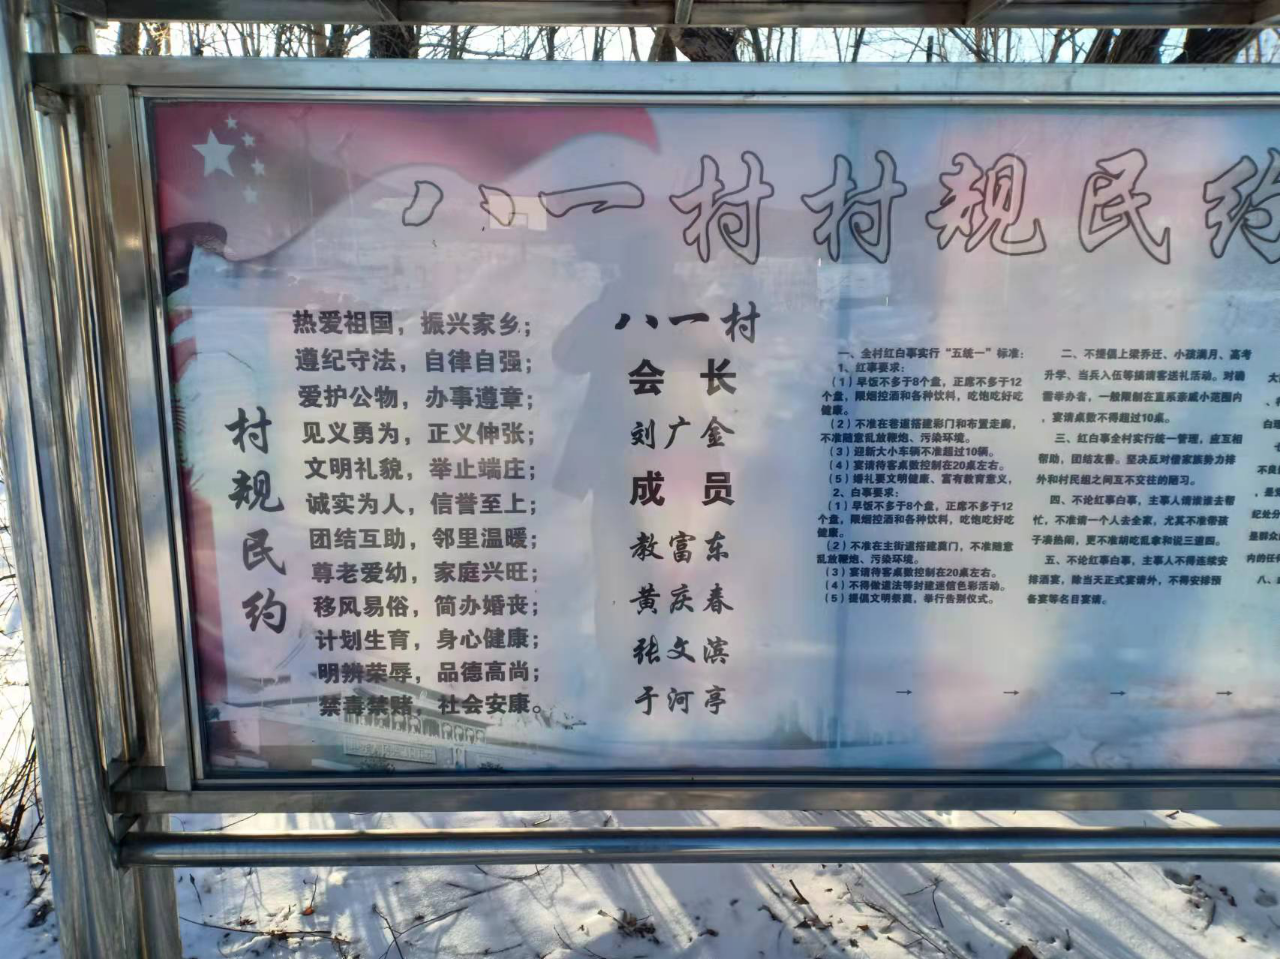 八一村村规民约
村规民约
热爱祖国，振兴家乡；
遵纪守法，自律自强；
爱护公物，办事遵章；
见义勇为，正义伸张；
文明礼貌，举止端庄；
诚实为人，信誉至上；
团结互助，邻里温暖；
尊老爱幼，家庭兴旺；
移风易俗，简办婚丧；
计划生育，身心健康；
明辨荣辱，品德高尚；
禁毒禁赌，社会安康。
八一村
会 长
刘广金
成 员
教富东
黄庆春
张文滨
于河亭
一、全村红白事实行“五统一”标准：
1、红事要求：
（1）早饭不多于8个盘，正席不多于12
个盘，限烟控酒和各种饮料，吃饱吃好吃
健康。
（2）不准在巷道搭建彩门和布置走廊，
不准随意乱放鞭炮、污染环境。
（3）迎新大小车辆不准超过10辆。
（4）宴请待客桌数控制在20桌左右。
（5）婚礼要文明健康、富有教育意义，
2、白事要求：
（1）早饭不多于8个盘，正席不多于12
个盘，限烟控酒和各种饮料，吃饱吃好吃
健康。
（2）不准在主街道搭建奠门，不准随意
乱放鞭炮、污染环境。
（3）宴请待客桌数控制在20桌左右。
（4）不得做道法等封建迷信色彩活动。
（5）提倡文明祭奠，举行告别仪式。
二、不提倡上梁乔迁、小孩满月、高考
升学、当兵入伍等搞请客送礼活动。对确
需举办者，一般限制在直系亲戚小范围内
，宴请桌数不得超过10桌。
三、红白事全村实行统一管理，应互相
帮助，团结友善。坚决反对借家族势力排
外和村民组之间互不交往的陋习。
四、不论红事白事，主事人请谁谁去帮
忙，不准请一个人去全家，尤其不准带孩
子凑热闹，更不准胡吃乱拿和说三道四。
五、不论红事白事，主事人不得连续安
排酒宴，除当天正式宴请外，不得安排预
备宴等名目宴请。